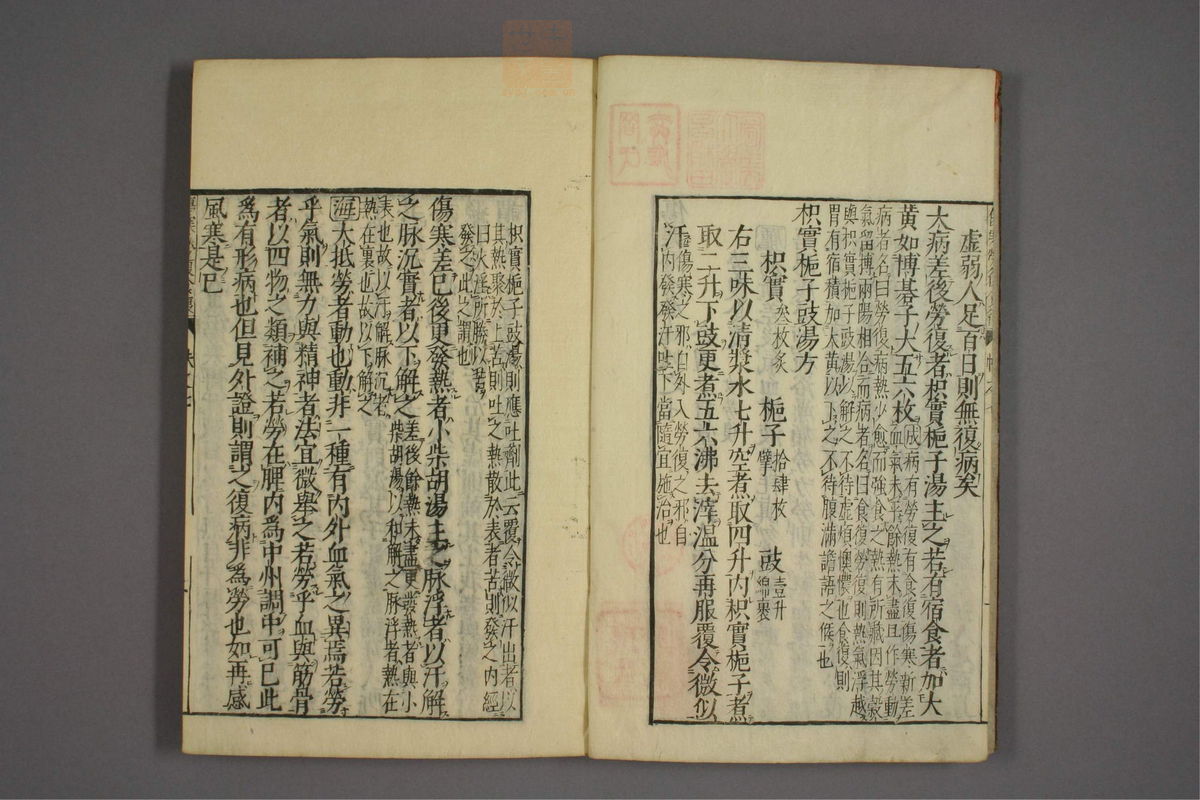 虛弱人足百日則無復病矣
大病差後勞復者枳實梔子湯主之若有宿食者加大
黃如博碁子大五六枚成病有勞復有食復傷寒新差
血氣未平餘熱未盡且作勞動
病者名曰勞復病熱少愈而強食之熱有所藏因其穀
氣留搏兩陽相合而病者名曰食復勞復則熱氣浮越
與枳實梔子豉湯以解之不待虛煩懊憹也食復則
胃有宿積加大黃以下之不待腹滿譫語之候也
枳實梔子豉湯方
枳實叁枚炙 梔子拾肆枚擘 豉壹升綿裹
右三味以清漿水七升空煮取四升内枳實梔子煮
取二升下豉更煮五六沸去滓温分再服覆令微似
汗傷寒之邪自外入勞復之邪自
内發發汗吐下當隨宜施治也
枳實梔子豉湯則應吐劑此云覆令微似汗出者以
其熱聚於上苦則吐之熱散於表者苦則發之内經
曰火淫所勝以苦
發之此之謂也
傷寒差已後更發熱者小柴胡湯主之脉浮者以汗解
之脉沉實者以下解之差後餘熱未盡更發熱者與小
柴胡湯以和解之脉浮者熱在
表也故以汗解脉沉者
熱在裏也故以下解之
海大抵勞者動也動非一種有内外血氣之異焉若勞
乎氣則無力與精神者法宜微舉之若勞乎血與筋骨
者以四物之類補之若勞在脾内爲中州調中可已此
爲有形病也但見外證則謂之復病非爲勞也如再感
風寒是已